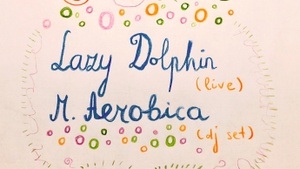 Lazy Dolphin
(live)
M. Aerobica
(dj set)